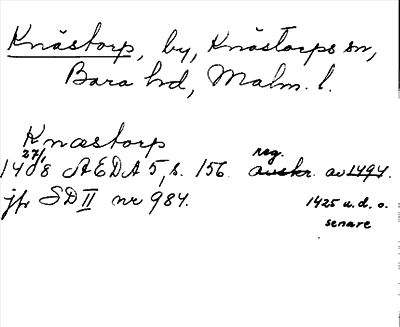 Knästorp, by, Knästorps sn,
Bara hd, Malm. l.
Knæstorp
27/1 reg.
1408 AEDA 5, s. 156. avskr. av 1494.
jfr SD II nr 984.
1425 u. d. o.
senare